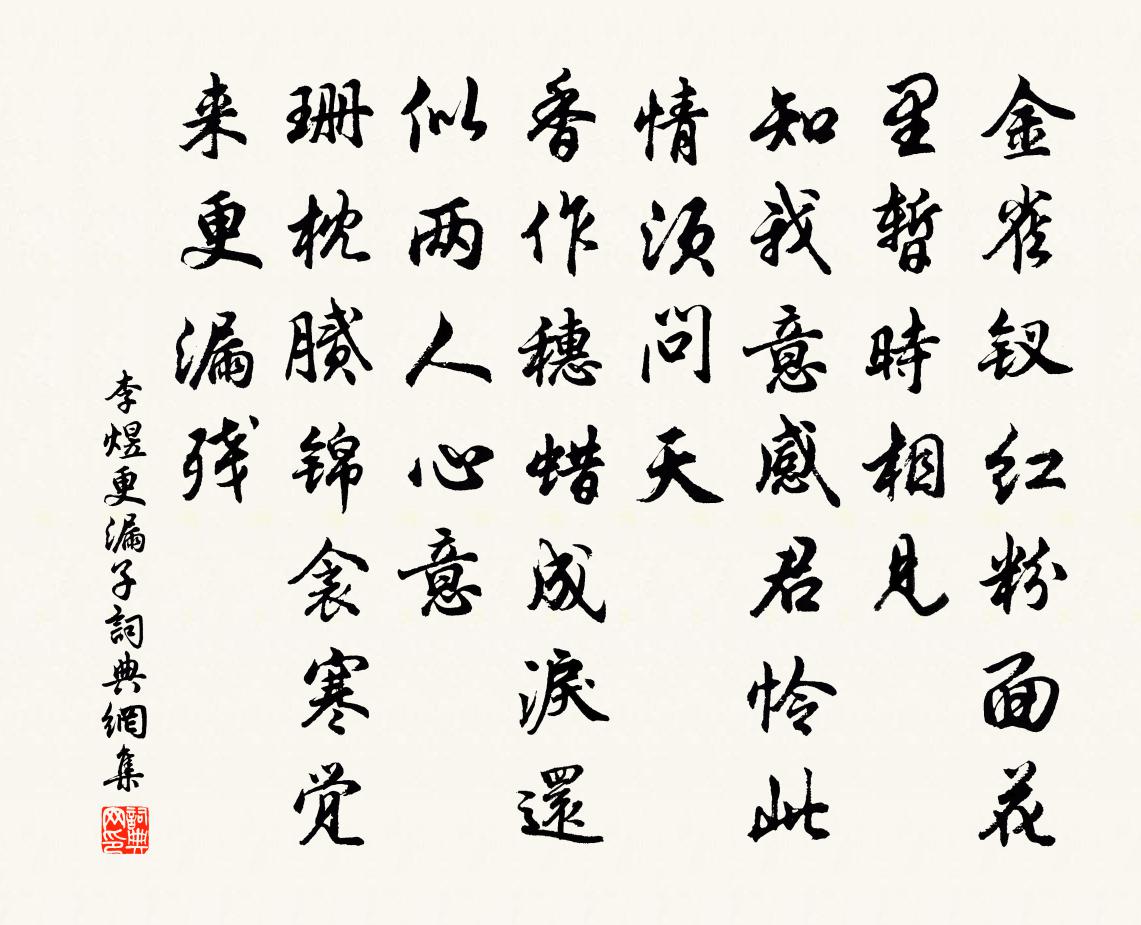 金雀钗红粉面花
里暂時相見
知我意感君怜此
情须问天
香作穗蜡成淚還
似两人心意
珊枕腻锦衾寒觉
来更漏残
李煜更漏子詞典網集
詞典网印